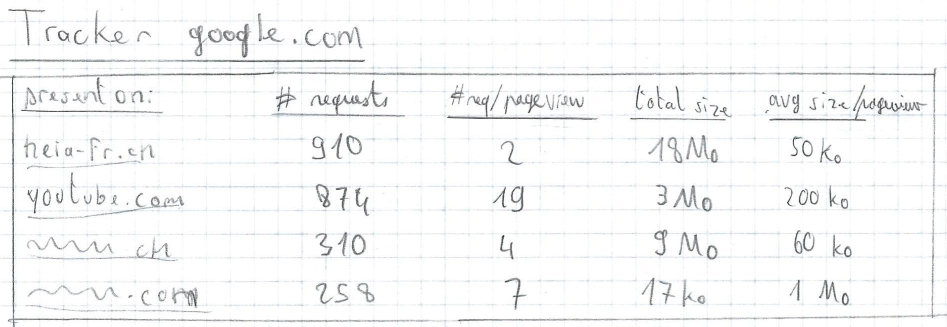 Tracker google.com
present on: # requests #req/pageview total size avg size/pageview
heia-fr.ch 910 2 18 Mo 50 ko
youtube.com 874 19 3 Mo 200 ko
ch 310 4 9 Mo 60 ko
.com 258 7 17 ko 1 Mo